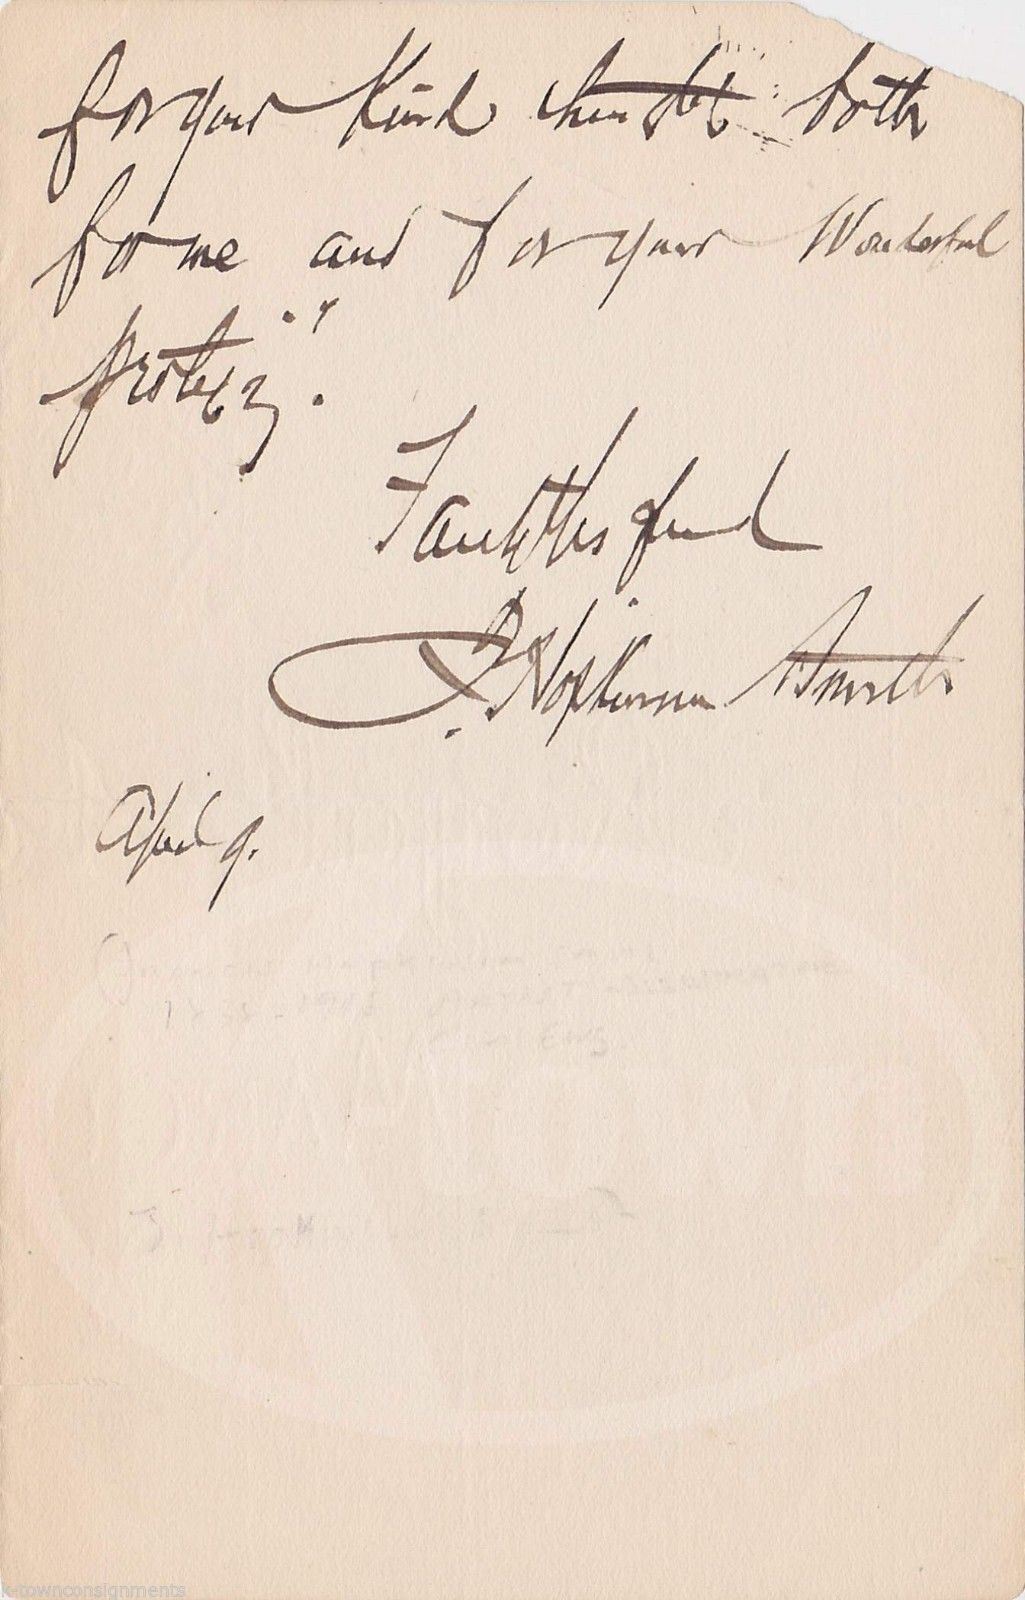 for your kind thought both
for me and for your Wonderful
protegé".
Faithful friend
F. Hopkinson Smith
April 9.
k-townconsignments